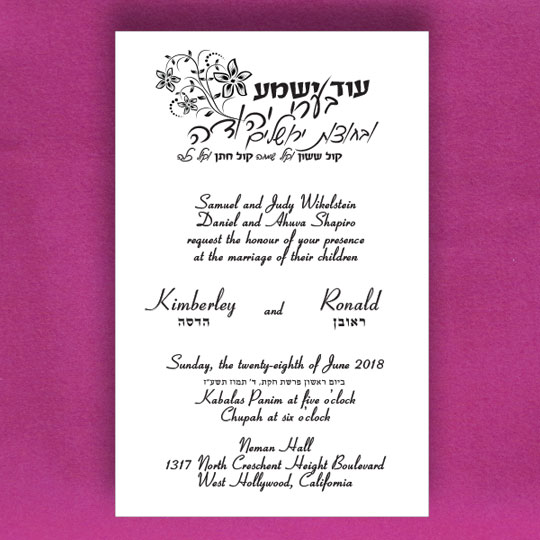 עוד ישמע
בערי יהודה
ובחוצות ירושלים
קול ששון וקול שמחה קול חתן וקול כלה
Samuel and Judy Wikelstein
Daniel and Ahuva Shapiro
request the honour of your presence
at the marriage of their children
Kimberley and Ronald
הדסה ראובן
Sunday, the twenty-eighth of June 2018
ביום ראשון פרשת חקת, ד' תמוז תשע"ז
Kabalas Panim at five o'clock
Chupah at six o'clock
Neman Hall
1317 North Creschent Height Boulevard
West Hollywood, California